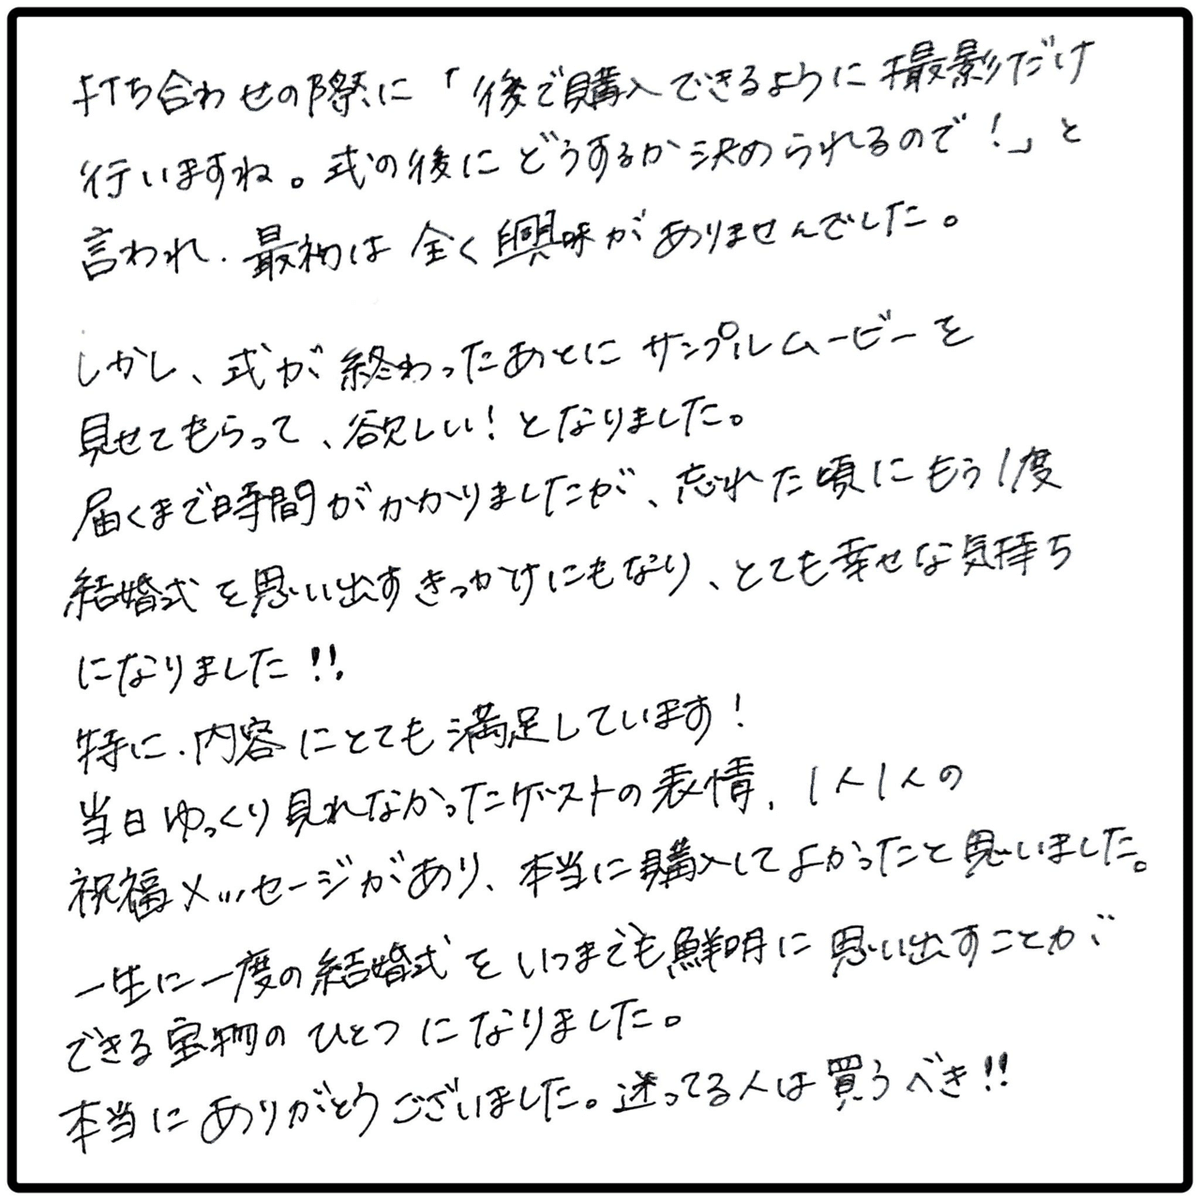 打ち合わせの際に「後で購入できるように撮影だけ
行いますね。式の後にどうするか決められるので！」と
言われ、最初は全く興味がありませんでした。
しかし、式が終わったあとにサンプルムービーを
見せてもらって、欲しい！となりました。
届くまで時間がかかりましたが、忘れた頃にもう1度
結婚式を思い出すきっかけにもなり、とても幸せな気持ち
になりました!!
特に、内容にとても満足しています！
当日ゆっくり見れなかったゲストの表情、1人1人の
祝福メッセージがあり、本当に購入してよかったと思いました。
一生に一度の結婚式をいつまでも鮮明に思い出すことが
できる宝物のひとつになりました。
本当にありがとうございました。迷ってる人は買うべき!!